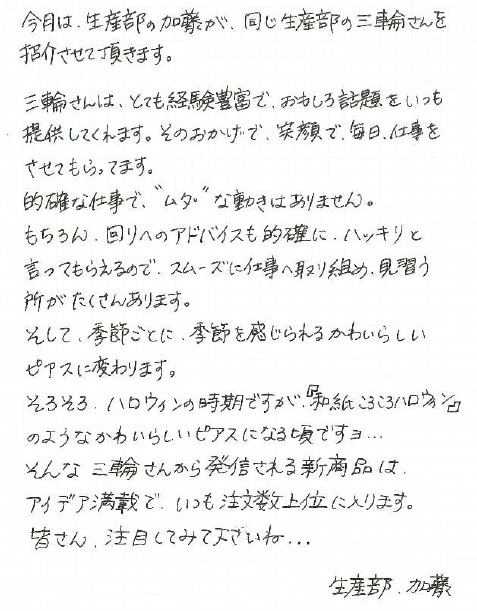 今月は、生産部の加藤が、同じ生産部の三輪さんを
紹介させて頂きます。
三輪さんは、とても経験豊富で、おもしろ話題をいつも
提供してくれます。そのおかげで、笑顔で、毎日、仕事を
させてもらってます。
的確な仕事で、"ムダ"な動きはありません。
もちろん、回りへのアドバイスも的確に、ハッキリと
言ってもらえるので、スムーズに仕事へ取り組め、見習う
所がたくさんあります。
そして、季節ごとに、季節を感じられるかわいらしい
ピアスに変わります。
そろそろ、ハロウィンの時期ですが、『和紙ころころハロウィン』
のようなかわいらしいピアスになる頃ですョ...
そんな三輪さんから発信される新商品は、
アイデア満載で、いつも注文数上位に入ります。
皆さん、注目してみて下さいね...
生産部、加藤